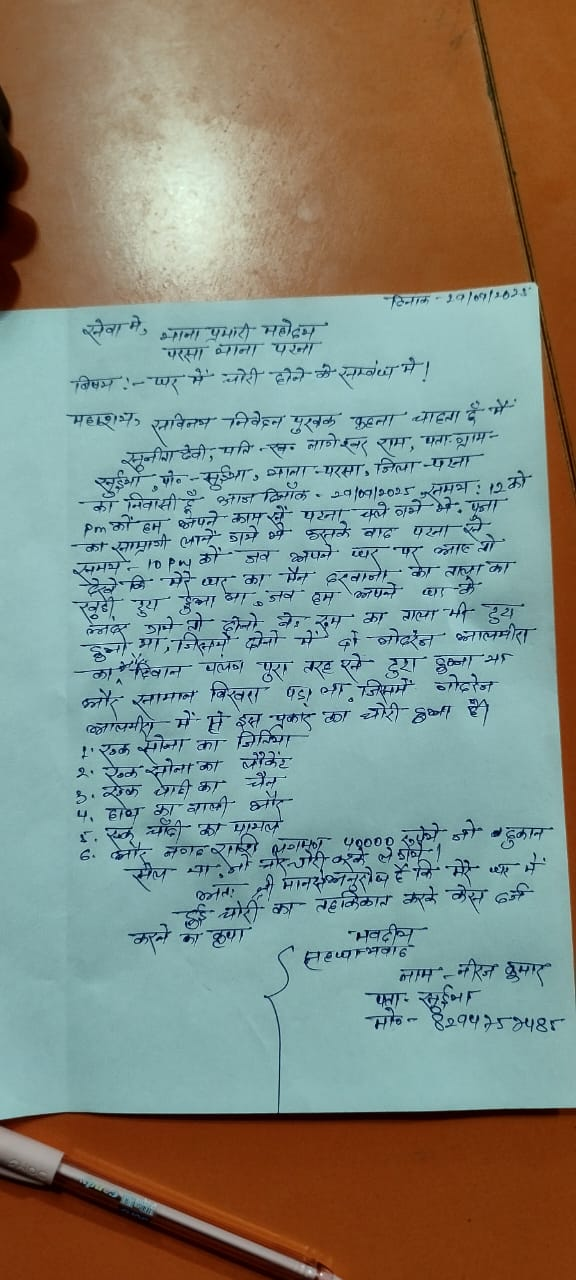 दिनांक - 29/09/2025
सेवा में,
थाना प्रभारी महोदय
परसा थाना पटना
बिषय :- घर में चोरी होने के सम्बंध में !
महाशय, सविनय निवेदन पुरवक कहना चाहता हूँ मैं
सुनीता देवी, पति - स्व॰ नागेश्वर राम, पता - ग्राम -
सुईथा, पो॰ - सुईथा, थाना - परसा, जिला - पटना
का निवासी हूँ आज दिनाँक - 29/09/2025 समय : 12 को
pm को हम अपने काम से पटना चले गये थे. पूजा
का सामाग्री लाने गये थे उसके बाद पटना से
समय - 10 pm को जब अपने घर पर आए तो
देखे कि मेरे घर का मैन दरवाजा का ताला का
टुटा हुआ था. जब हम अपने घर के
अंदर गये तो दोनो रूम का ताला भी टुटा
हुआ था, जिसमें दोनो में दो गोदरेज आलमीरा
का दिवान पलंग पुरा तरह से टुटा हुआ था
और सामान बिखरा पड़ा था जिसमें गोदरेज
आलमीरा में से इस प्रकार का चोरी हुआ है।
1. एक सोना का जितिया
2. एक सोना का लौकेट
3. एक चांदी का चैन
4. हाथ का बाली और
5. एक चाँदी का पायल
6. और नगद राशी लगभग 40000 रूपये जो दुकान
सेल था. भी चोर चोरी करके ले गये !
अतः श्री मान से अनुरोध है कि मेरे घर में
हुई चोरी का तहकिकात करके केस दर्ज
करने का कृपा
भवदीय
सहधन्यवाद
नाम - नीरज कुमार
पता - सुईथा
मो॰ -